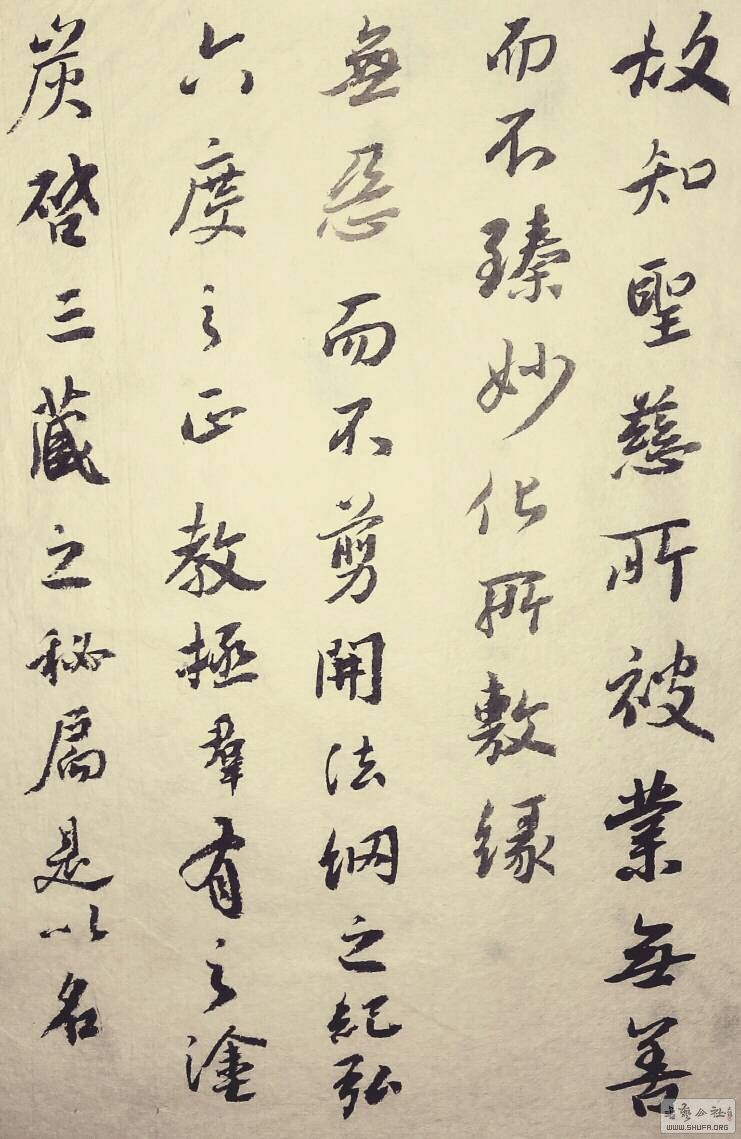 故知聖慈所被業無善
而不臻妙化所敷緣
無惡而不剪開法網之紀弘
六度之正教拯羣有之塗
炭啓三藏之秘扃是以名
書藝公社
WWW.SHUFA.ORG